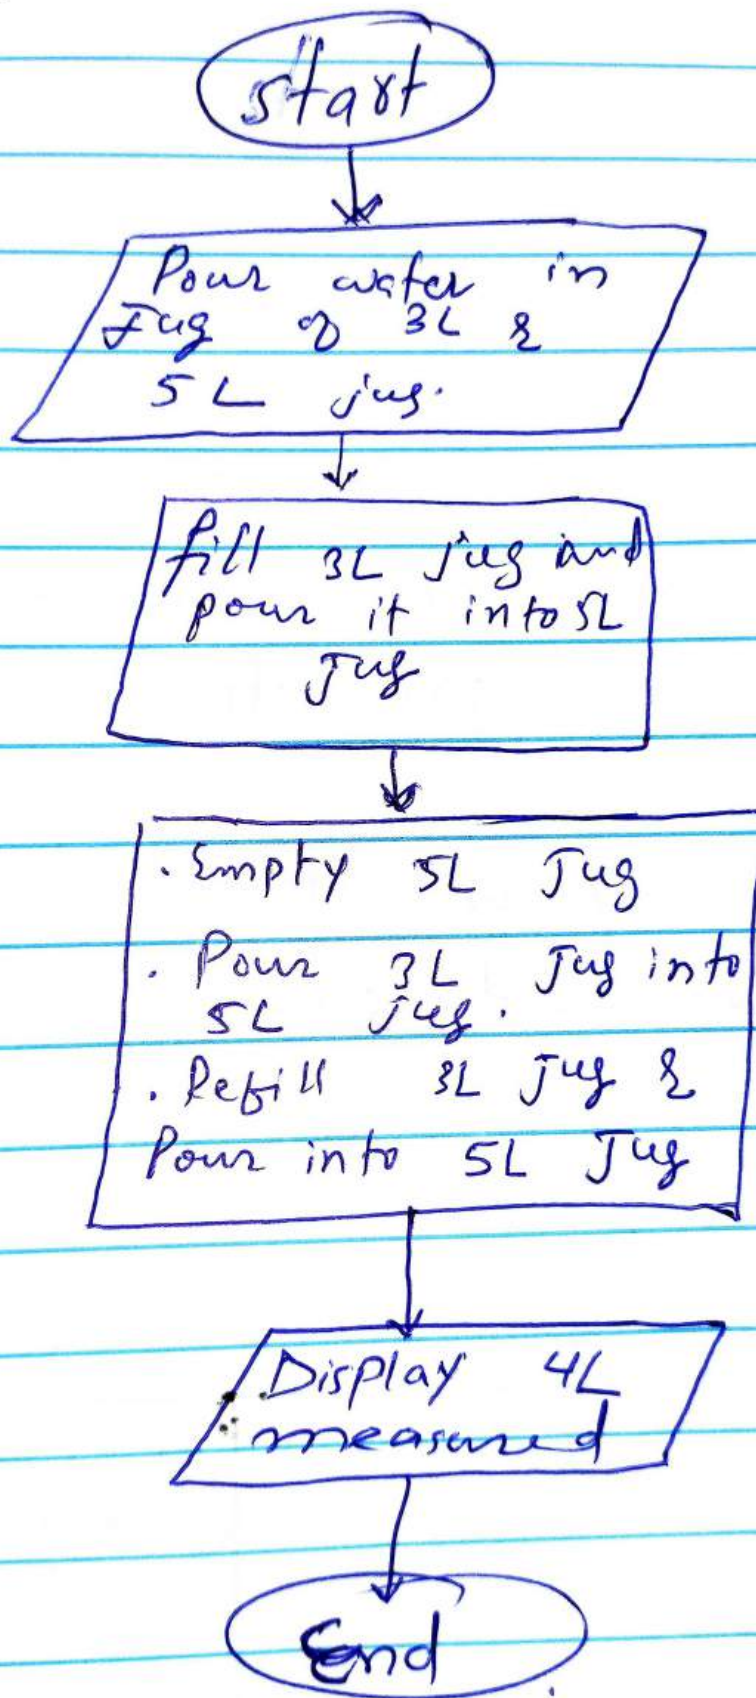 start
Pour water in
Jug of 3L &
5L jug.
fill 3L jug and
pour it into 5L
Jug
. Empty 5L Jug
. Pour 3L Jug into
5L jug.
. Refill 3L Jug &
Pour into 5L Jug
Display 4L
measured
End